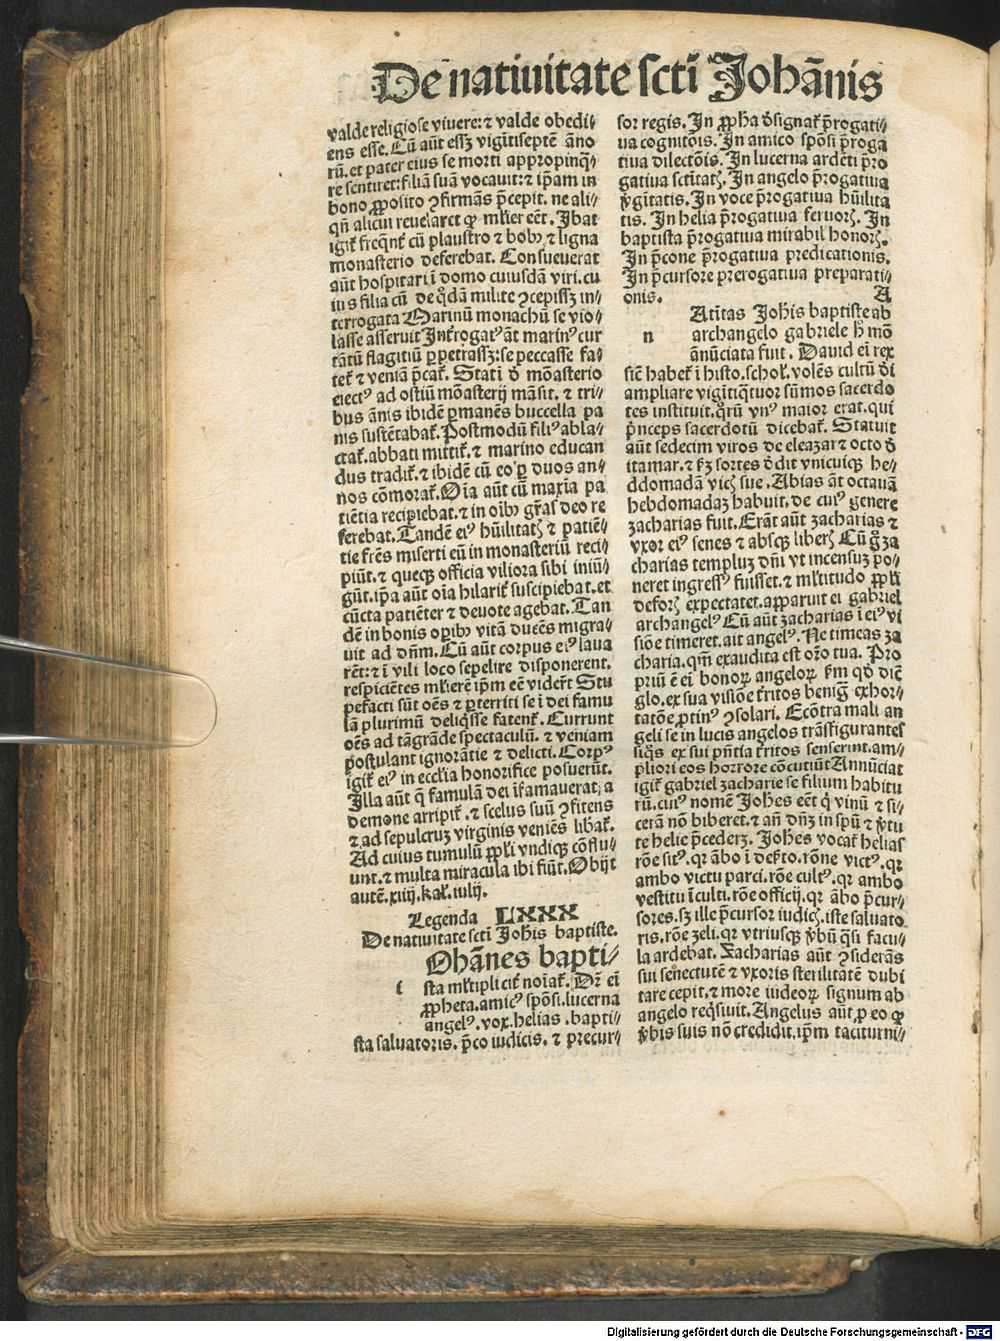 De natiuitate scti Johānis
valde religiose viuere: ⁊ valde obedi⸗
ens esse. Cū aūt essꝫ vigītiseptē āno
rū. et pater eius se morti appropinq̄⸗
re sentiret: filiā suā vocauit: ⁊ ip̄am in
bono ꝓposito ꝯfirmās p̄cepit. ne ali⸗
qn̄ alicui reuelaret ꝙ mlier eēt. Ibat
igit freq̄nt cū plaustro ⁊ bobꝰ ⁊ ligna
monasterio deferebat. Consueuerat
aūt hospitari ī domo cuiusdā viri. cu
ius filia cū de q̊dā milite ꝯcepissꝫ in⸗
terrogata Marinū monachū se vio⸗
lasse asseruit Introgatꝰ āt marinꝰ cur
tātū flagitiū ꝑpetrassꝫ: se peccasse fa⸗
tet ⁊ veniā p̄cat. Stati d̄ mōasterio
eiectꝰ ad ostiū mōasterij māsit. ⁊ tri⸗
bus ānis ibidē ꝑmanēs buccella pa
nis sustētabat. Postmodū filiꝰ abla⸗
ctat. abbati mittit. ⁊ marino educan
dus tradit. ⁊ ibidē cū eo ꝑ duos an⸗
nos cōmorat. Oīa aūt cū maxīa pa
tiētia recipiebat. ⁊ in oībꝰ gr̄as deo re
ferebat. Tandē eiꝰ hūilitatꝫ ⁊ patiē⸗
tie fr̄es miserti eū in monasteriū reci
piūt. ⁊ queqꝫ officia viliora sibi iniū⸗
gūt. ip̄a aūt oīa hilarit suscipiebat. et
cūcta patiēter ⁊ deuote agebat. Tan
dē in bonis oꝑibꝰ vitā ducēs migra⸗
uit ad dn̄m. Cū aūt corpus eiꝰ laua
rēt: ⁊ ī vili loco sepelire disponerent.
respiciētes mlierē ip̄m eē viderūt Stu
pefacti sūt oēs ⁊ ꝑterriti se ī dei famu
lā plurimū deliq̄sse fatent. Currunt
oēs ad tā grāde spectaculū. ⁊ veniam
postulant ignorātie ⁊ delicti. Corpꝰ
igit eiꝰ in ecclīa honorifice posuerūt.
Illa aūt q̄ famulā dei īfamauerat, a
demone arripit. ⁊ scelus suū ꝯfitens
⁊ ad sepulcruꝫ virginis veniēs libat.
Ad cuius tumulū ppli vndiqꝫ cōflu⸗
unt. ⁊ multa miracula ibi fiūt. Obijt
autē. xiiij. kal. iulij.
Legenda LXXX
De natiuitate scti Johis baptiste.
i Ohānes bapti⸗
sta mltiplicit noīat. Dr̄ eī
ꝓpheta. amicꝰ spōsi. lucerna
angelꝰ. vox. helias. bapti⸗
sta saluatoris. p̄co iudicis. ⁊ precur⸗
sor regis. In ꝓpha d̄signat p̄rogati⸗
ua cognitōis. In amico spōsi p̄roga
tiua dilectōis. In lucerna ardēti p̄ro
gatiua sctitatꝫ. In angelo p̄rogatiua
v̓gitatis. In voce p̄rogatiua hūilita
tis. In helia p̄rogatiua feruorꝫ. In
baptista p̄rogatiua mirabil honorꝫ.
In p̄cone p̄rogatiua predicationis.
In p̄cursore prerogatiua preparati⸗
onis. A
n Atiuitas Johis baptiste ab
archangelo gabriele h̄ mō
ānūciata fuit. Dauid eī rex
sic̄ habet ī histo. schol. volēs cultū d̄i
ampliare vigītiq̄tuor sūmos sacerdo
tes instituit. q̊rū vnꝰ maior erat. qui
p̄nceps sacerdotū dicebat. Statuit
aūt sedecim viros de eleazar ⁊ octo d̄
itamar. ⁊ ẜꝫ sortes dedit vnicuiqꝫ he⸗
ddomadā vicꝫ sue. Abias āt octauā
hebdomadaꝫ habuit. de cuiꝰ genere
zacharias fuit. Erāt aūt zacharias ⁊
vxor eiꝰ senes ⁊ absqꝫ liberꝫ Cū gͦ za
charias templuꝫ dn̄i vt incensuꝫ po⸗
neret ingressꝰ fuisset. ⁊ mltitudo ppli
deforꝫ expectatet. apparuit ei gabriel
archangelꝰ Cū aūt zacharias ī eiꝰ vi
siōe timeret. ait angelꝰ. Ne timeas za
charia. qm̄ exaudita est or̄o tua. Pro
priū ē eī bonoꝝ angeloꝝ ẜm qd̄ dic̄
glo. ex sua visiōe t̄ritos benig̅ exhor⸗
tatōe ꝓtinꝰ ꝯsolari. Ecōtra mali an
geli se in lucis angelos trāsfigurantes
siqͦs ex sui p̄ntia t̄ritos senserint. am⸗
pliori eos horrore cōcutiūt Annūciat
igit gabriel zacharie se filium habitu
rū. cuiꝰ nomē Johes eēt q̄ vinū ⁊ si⸗
cerā nō biberet. ⁊ an̄ dn̄ꝫ in sp̄u ⁊ v̓tu
te helie p̄cederꝫ. Johes vocat helias
rōe sitꝰ. qr ābo ī deẜto. rōne victꝰ. qr
ambo victu parci. rōe cultꝰ. qr ambo
vestitu īculti. rōe officij. qr ābo p̄cur⸗
sores. sꝫ ille p̄cursor iudicꝫ. iste saluato
ris. rōe zeli. qr vtriusqꝫ v̓bū q̄si facu⸗
la ardebat. Zacharias aūt ꝯsiderās
sui senectutē ⁊ vxoris sterilitatē dubi
tare cepit. ⁊ more iudeoꝝ signum ab
angelo reqͥsiuit. Angelus aūt ꝓ eo ꝙ
v̓bis suis nō credidit. ip̄m taciturni⸗
Digitalisierung gefördert durch die Deutsche Forschungsgemeinschaft - DFG